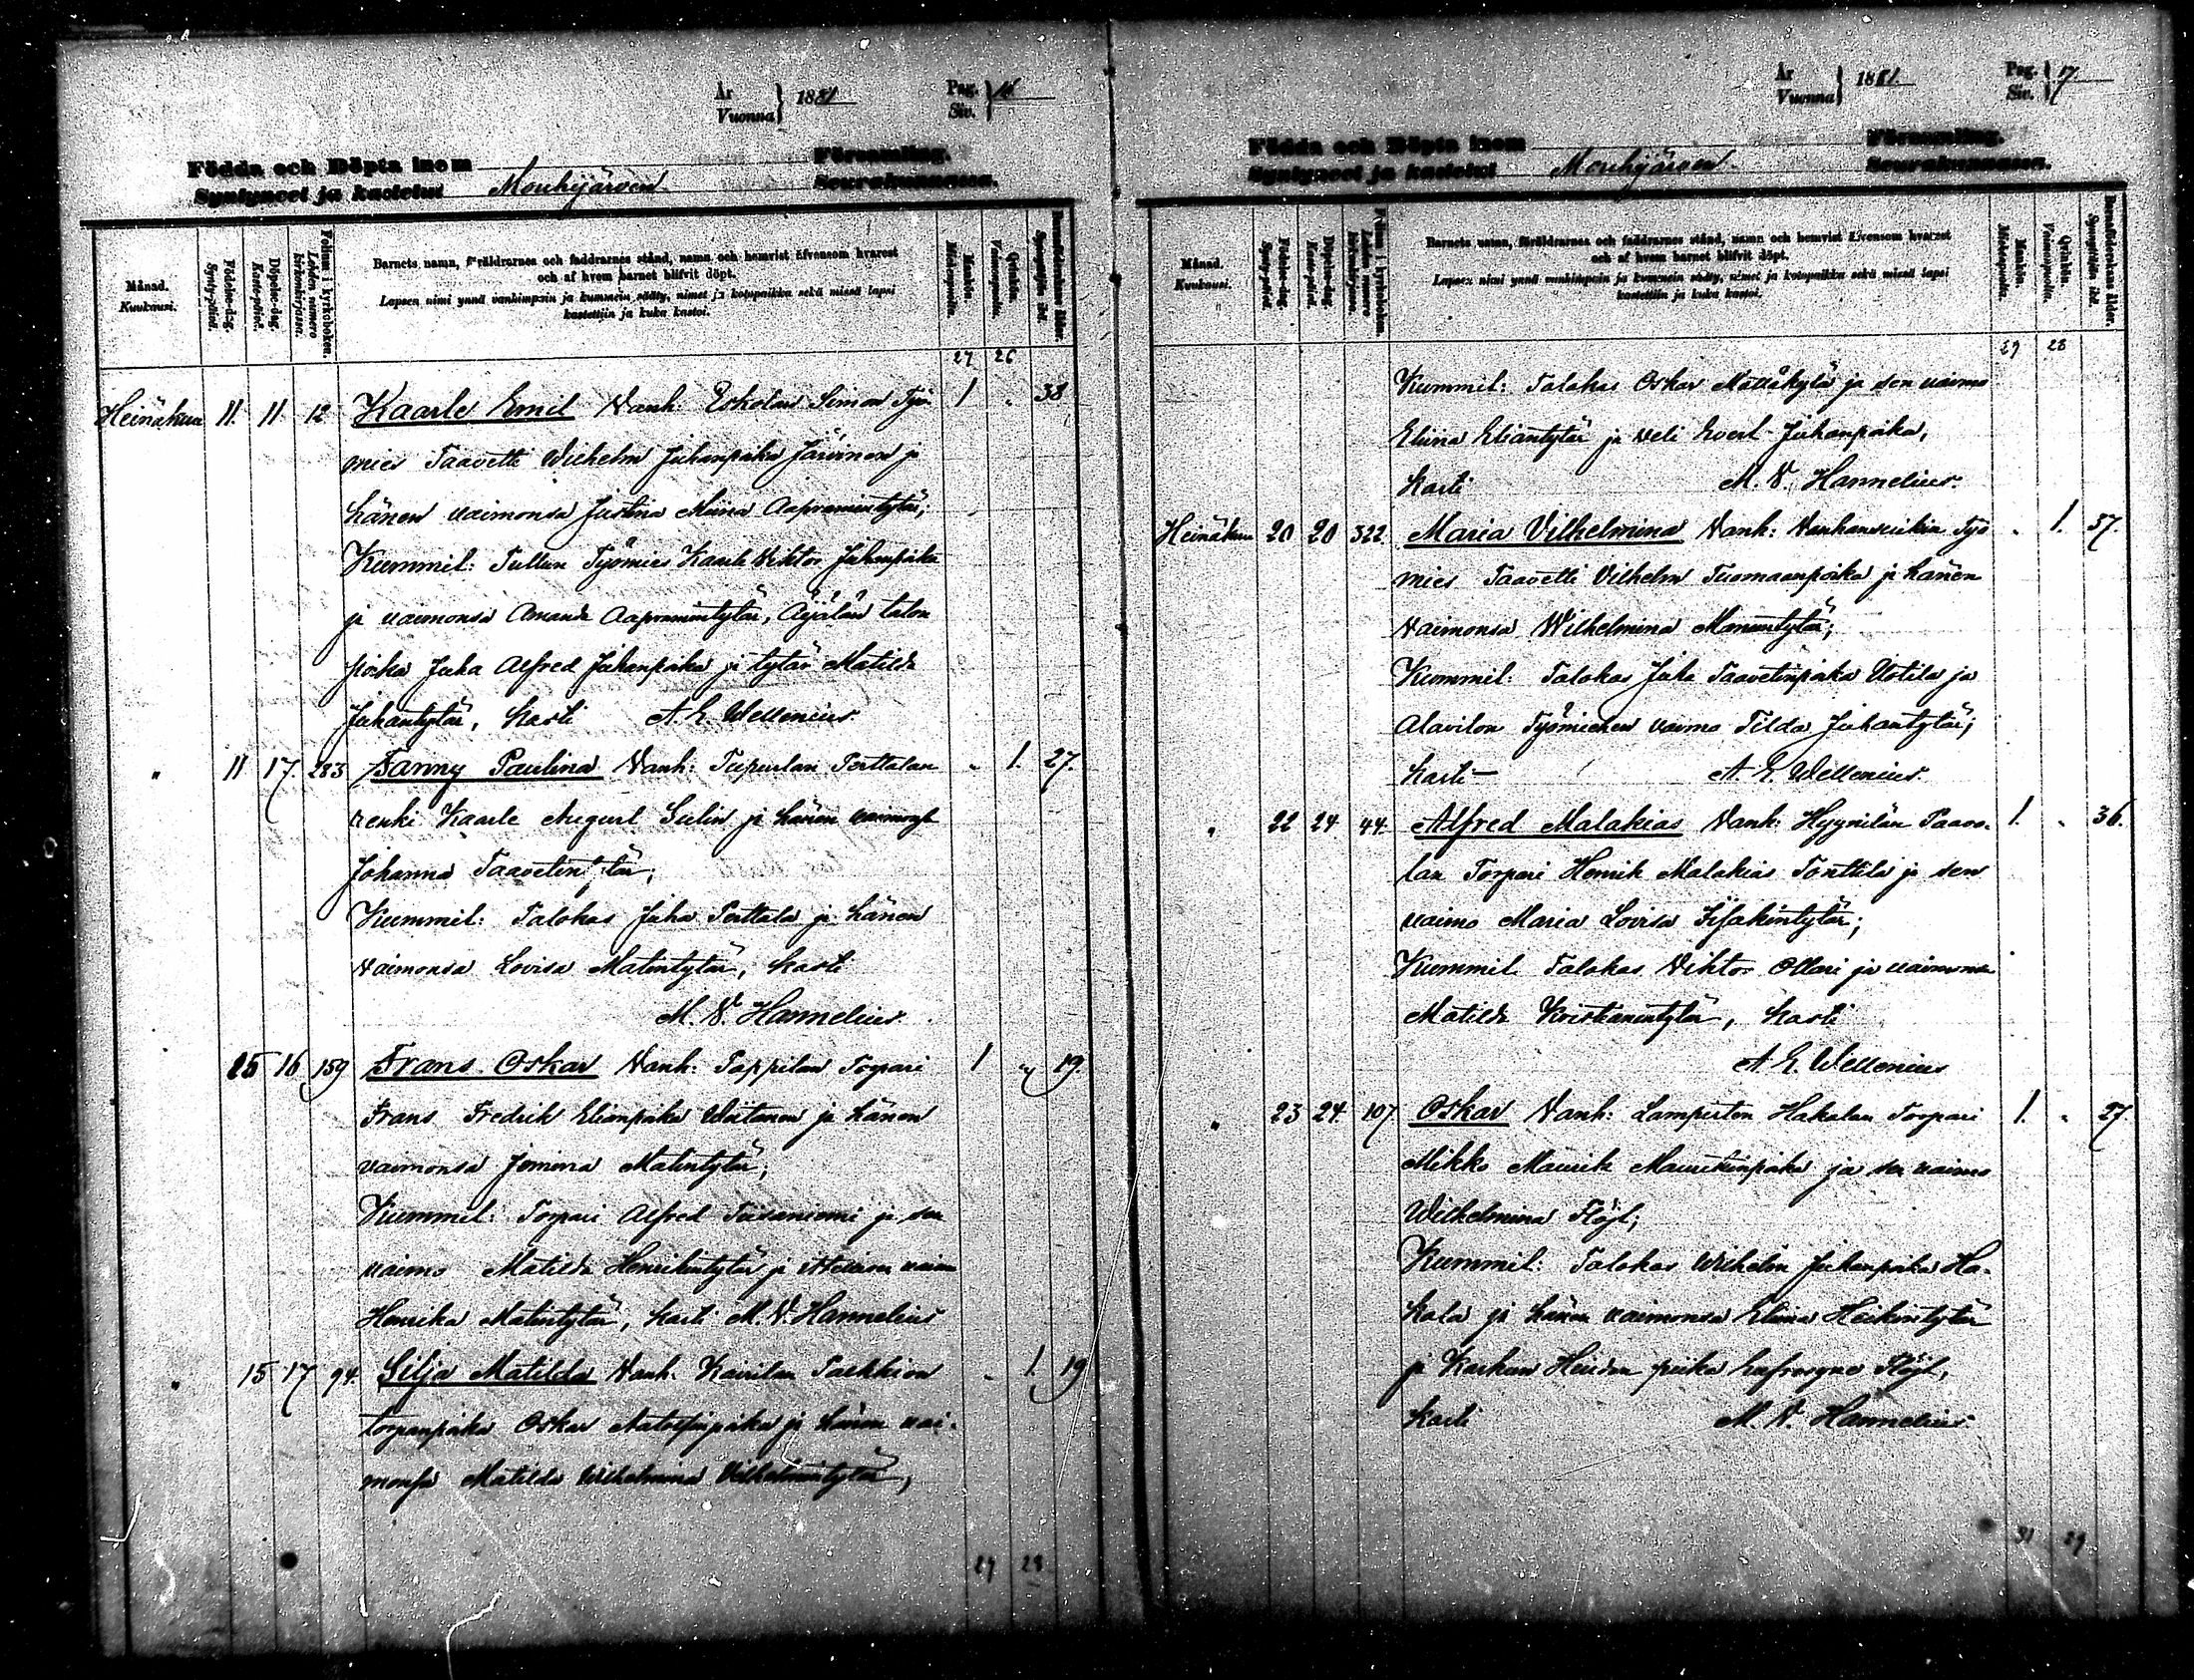 År
Vuonna } 1881
Pag.
Siv. } 16
Födda och Döpta inom Församling.
Syntyneet ja kastetut Mouhijärven Seurakunnassa.
Månad.
Kuukausi.
Födelse-dag.
Syntypäivä.
Döpelse-dag.
Kaste-päivä.
Folium i kyrkoboken.
Lehden numero kirkonkirjassa.
Barnets namn, föräldrarnes och faddrarnes stånd, namn och hemvist äfvensom hvarest
och af hvem barnet blifvit döpt.
Lapsen nimi ynnä vanhimpain ja kummein sääty, nimet ja kotopaikka sekä missä lapsi
kastettiin ja kuka kastoi.
Mankön.
Miehenpuolia.
Qvinkön.
Vaimonpuolia.
Barnaföderskans ålder.
Synnyttäjän ikä.
27 26
Heinäkuu 11. 11. 12 Kaarle Emil Vanh: Eskolan Simon Työ- 1 " 38
mies Taavetti Wilhelm Juhanpoika Järvinen ja
hänen vaimonsa Justina Miina Aapramintytär;
Kummit: Tullun Työmies Kaarle Viktor Juhanpoika
ja vaimonsa Amanda Aapramintytär, Äijälän talon
poika Juha Alfred Juhanpoika ja tytär Matilda
Juhantytär, kasti A. E. Wellenius.
" 11 17. 283 Fanny Paulina Vanh: Perttalan " 1. 27.
renki Kaarle August Gelin ja hänen vaimonsa
Johanna Taavetintytär;
Kummit: Talokas Juha Perttala ja hänen
vaimonsa Lovisa Matintytär, kasti
M. V. Hannelius.
15 16 159 Frans Oskar Vanh: Pappilan Torpari 1 " 19.
Frans Fredrik Elianpoika Weitanen ja hänen
vaimonsa Jemina Matintytär;
Kummit: Torpari Alfred Tiisanniemi ja sen
vaimo Matilda Henrikintytär ja vaimo
Henrika Matintytär, kasti M. V. Hannelius
" 15 17 94. Silja Matilda Vanh: Kairilan Palkkion " 1. 19
torpanpoika Oskar Antoffinpoika ja hänen vai-
monsa Matilda Wilhelmina Vilhelmintytär;
29 28
År
Vuonna } 1881.
Pag.
Siv. } 17
Födda och Döpta inom Församling.
Syntyneet ja kastetut Mouhijärven Seurakunnassa.
Månad.
Kuukausi.
Födelse-dag.
Syntypäivä.
Döpelse-dag.
Kaste-päivä.
Folium i kyrkoboken.
Lehden numero kirkonkirjassa.
Barnets namn, föräldrarnes och faddrarnes stånd, namn och hemvist äfvensom hvarest
och af hvem barnet blifvit döpt.
Lapsen nimi ynnä vanhimpain ja kummein sääty, nimet ja kotopaikka sekä missä lapsi
kastettiin ja kuka kastoi.
Mankön.
Miehenpuolia.
Qvinkön.
Vaimonpuolia.
Barnaföderskans ålder.
Synnyttäjän ikä.
29 28
Kummit: Talokas Oskar Mättäkylä ja sen vaimo
Eliina Eliantytär ja Veli Evert Juhanpoika,
kasti M. V. Hannelius.
Heinäkuu 20 20 322 Maria Vilhelmina Vanh: Työ " 1. 37.
mies Taavetti Vilhelm Tuomaanpoika ja hänen
vaimonsa Wilhelmina Manuntytär;
Kummit: Talokas Juha Taavetinpoika Uotila ja
Alavilon Työmiehen vaimo Tilda Juhantytär;
kasti A. E. Wellenius.
" 22 24 44 Alfred Malakias Vanh: Hyynilän Paavo- 1. " 36.
lan Torpari Henrik Malakias Tonttila ja sen
vaimo Maria Lovisa Iisakintytär;
Kummit Talokas Viktor Ollari ja vaimonsa
Matilda Kristianintytär, kasti
A. E. Wellenius
" 23 24. 107 Oskar Vanh: Hakalan Torpari 1. " 27.
Mikko Maurits Mauritsinpoika ja sen vaimo
Wilhelmina Flöjt;
Kummit: Talokas Wilhelm Juhanpoika Ha-
kala ja hänen vaimonsa Eliina Heikintytär
ja Karkun poika Flöjt,
kasti M. V. Hannelius.
31 29